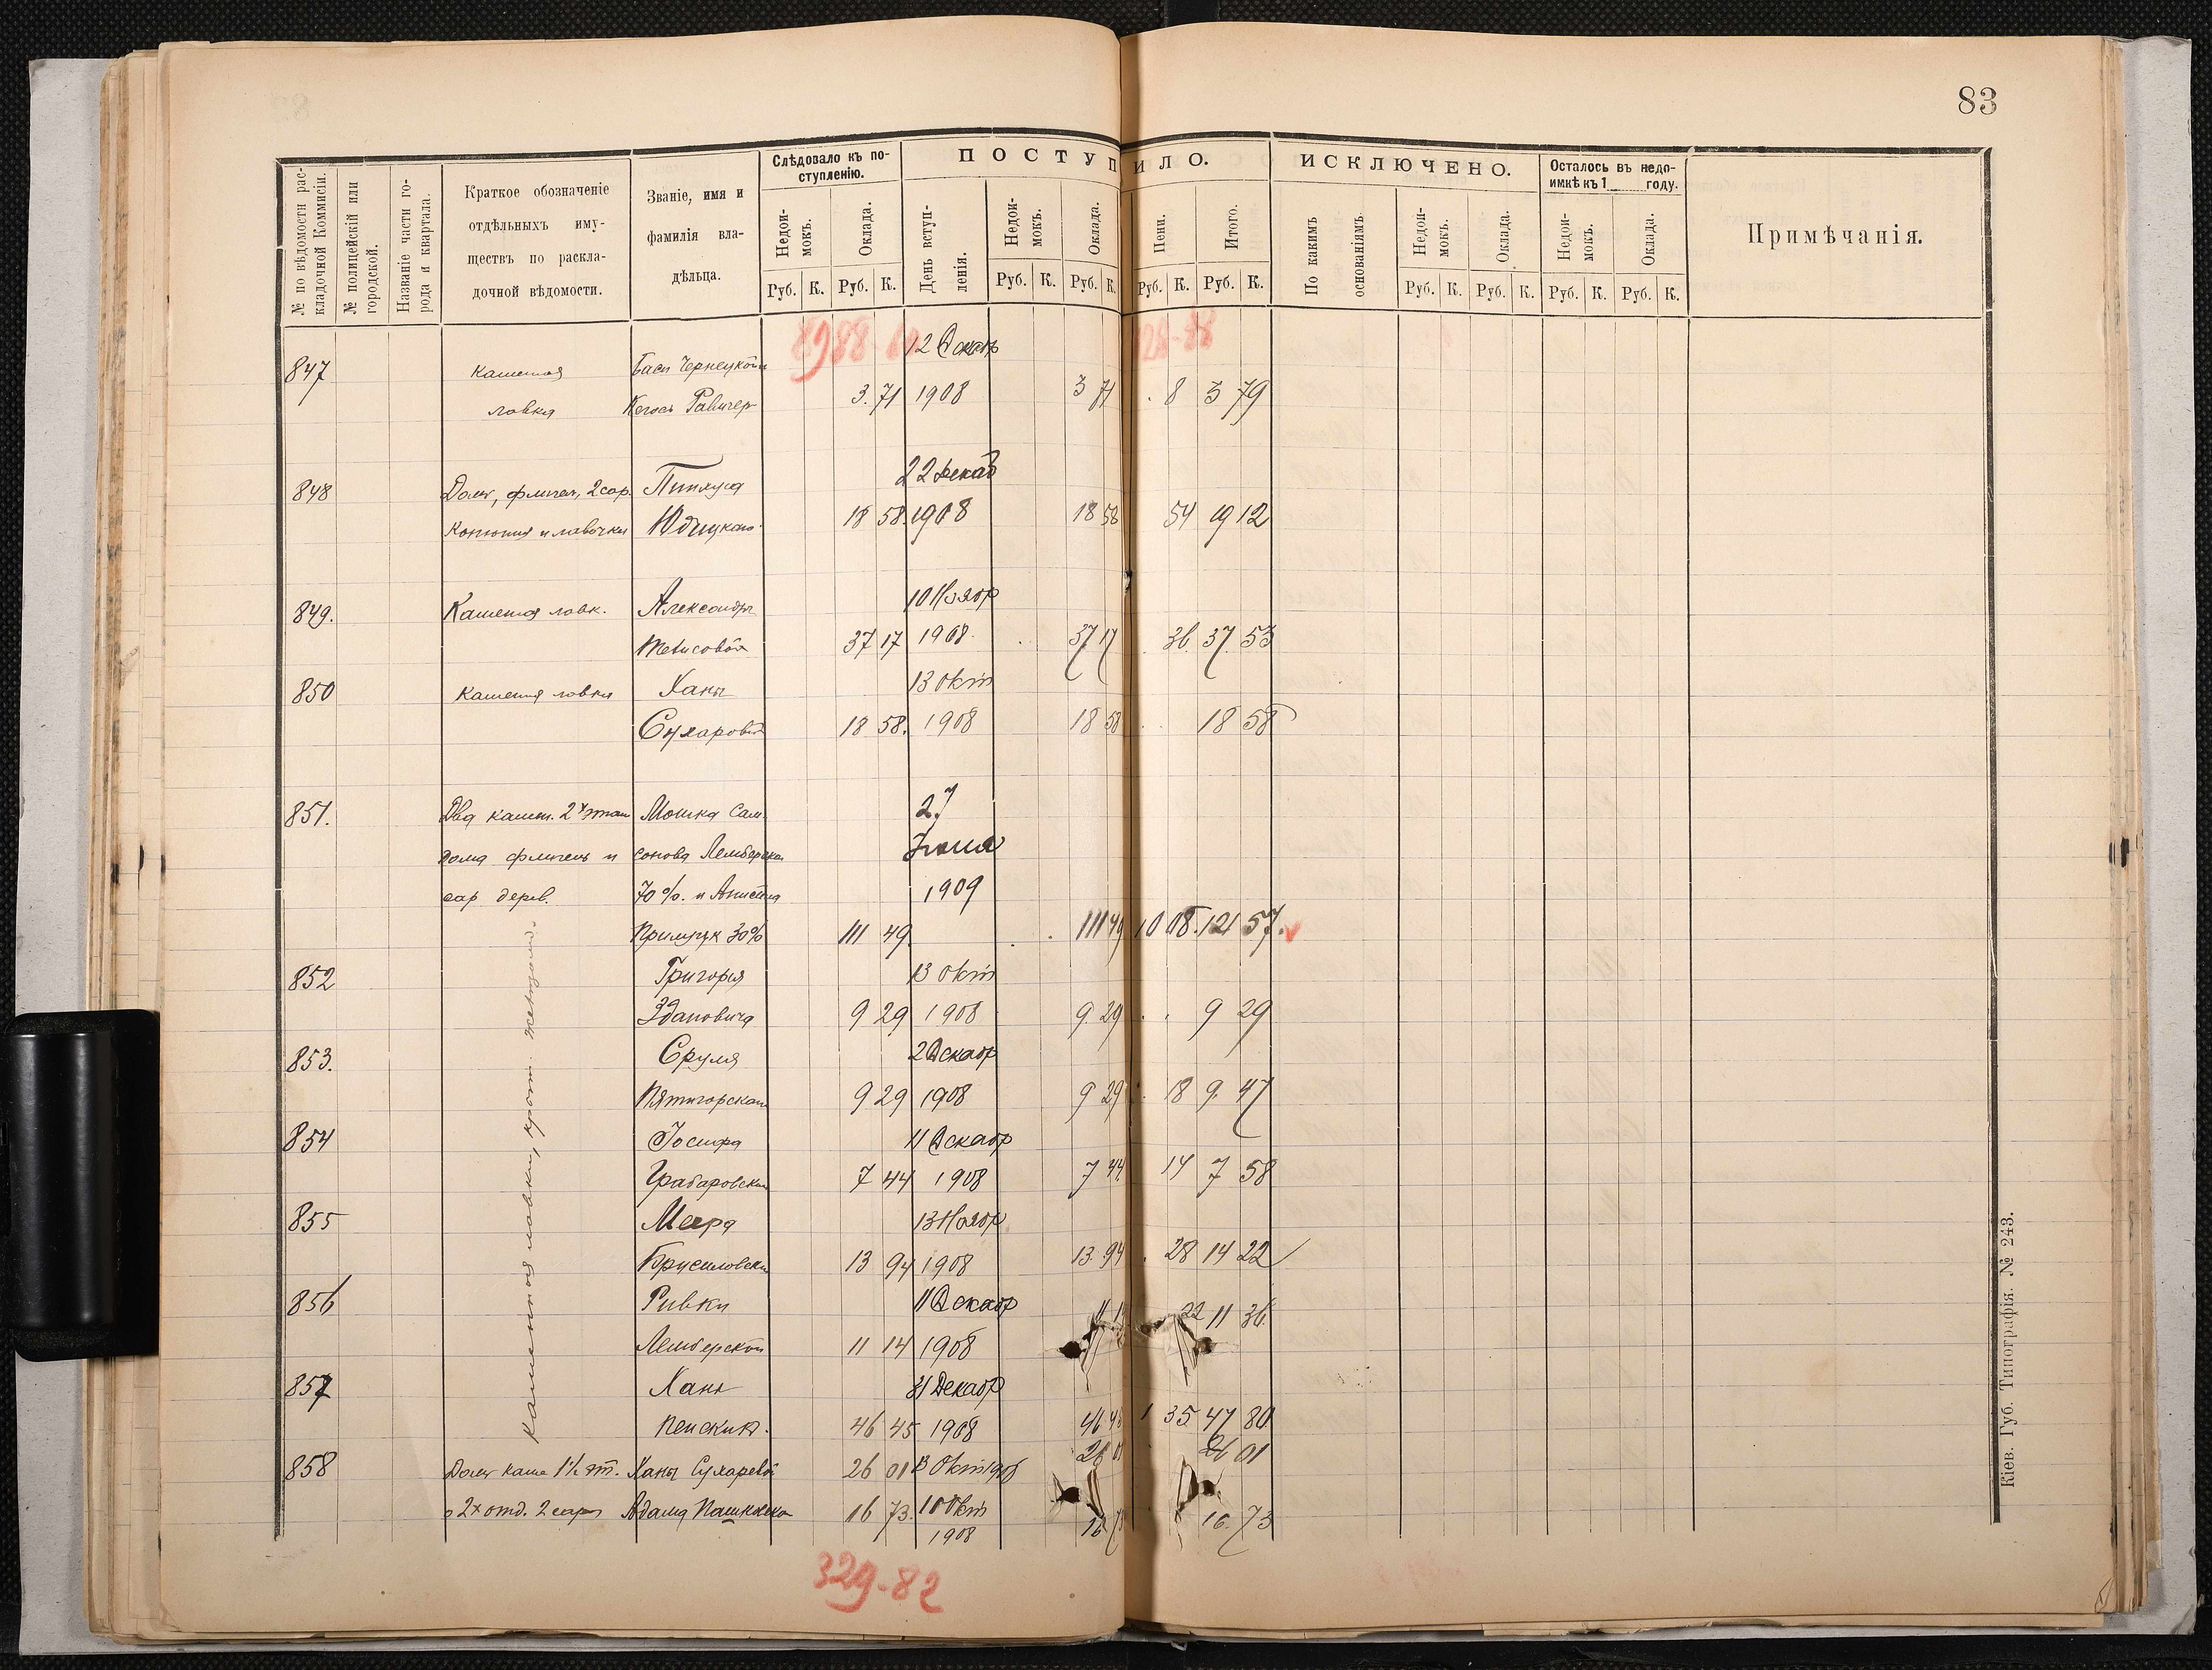 83
№ по вѣдомости раскладочной Коммисіи.
№ полицейскій или городской.
Названіе части города и квартала.
Краткое обозначеніе отдѣльныхъ имуществъ по раскладочной вѣдомости.
Званіе, имя и фамилія владѣльца.
Слѣдовало къ поступленію.
Недоимокъ. Оклада.
Руб. К. Руб. К.
ПОСТУПИЛО.
День вступленія.
Недоимокъ. Оклада. Пени. Итого.
Руб. К. Руб. К. Руб. К. Руб. К.
ИСКЛЮЧЕНО.
По какимъ основаніямъ.
Недоимокъ. Оклада.
Руб. К. Руб. К.
Осталось въ недоимкѣ къ 1 году.
Недоимокъ. Оклада.
Руб. К. Руб. К.
Примѣчанія.
847 каменная Баси Чернецкой 12 Декабр
лавка 3.71 1908 3 71 8 3 79
848 Домъ, флигел, 2 сар. Пинхуса 22 декаб
конюшня и лавочки Юдицкаго 18 58. 1908 18 58 54 19 12
849. Каменная лавк. Александры 10 Ноябр
37 17 1908. 37 17 36. 37. 53
850 Каменная лавка Ханы 13 окт
Сухаровой 18 58. 1908 18 58 18 58
851. Два камен. 2х этаж Мошка Сам
дома флигель и сонова Лемберска 27 Июня
сар дерев. 70%. и 1909
30% 111 49 111 49 10 08. 121 57.
852 Григорія 13 окт
Здановича 9 29 1908 9. 29 9 29
853. Сруля 2 Декабр
Пятигорскаго 9 29 1908 9 29 18 9. 47
854 Іосифа 11 Декабр
Грабаровскаго 7 44 1908 7 44 14 7 58
855 Меера 13 Ноябр
Брусиловскаго 13 94 1908 13. 94 28 14 22
856 Ривки 11 Декабр
Лемберской 11 14 1908 22 11 36.
857 Ханы 31 Декабр
46 45 1908 1 35 47 80
858 Домъ каме 1½ эт. Ханы Сухаревой 26 01 13 Окт 1908 26 01 26 01
о 2х отд. 2 сара Адама 16 73. 10 Окт 1908 16. 73
каменная лавки,
329-82
Кіев. Губ. Типографія. № 243.